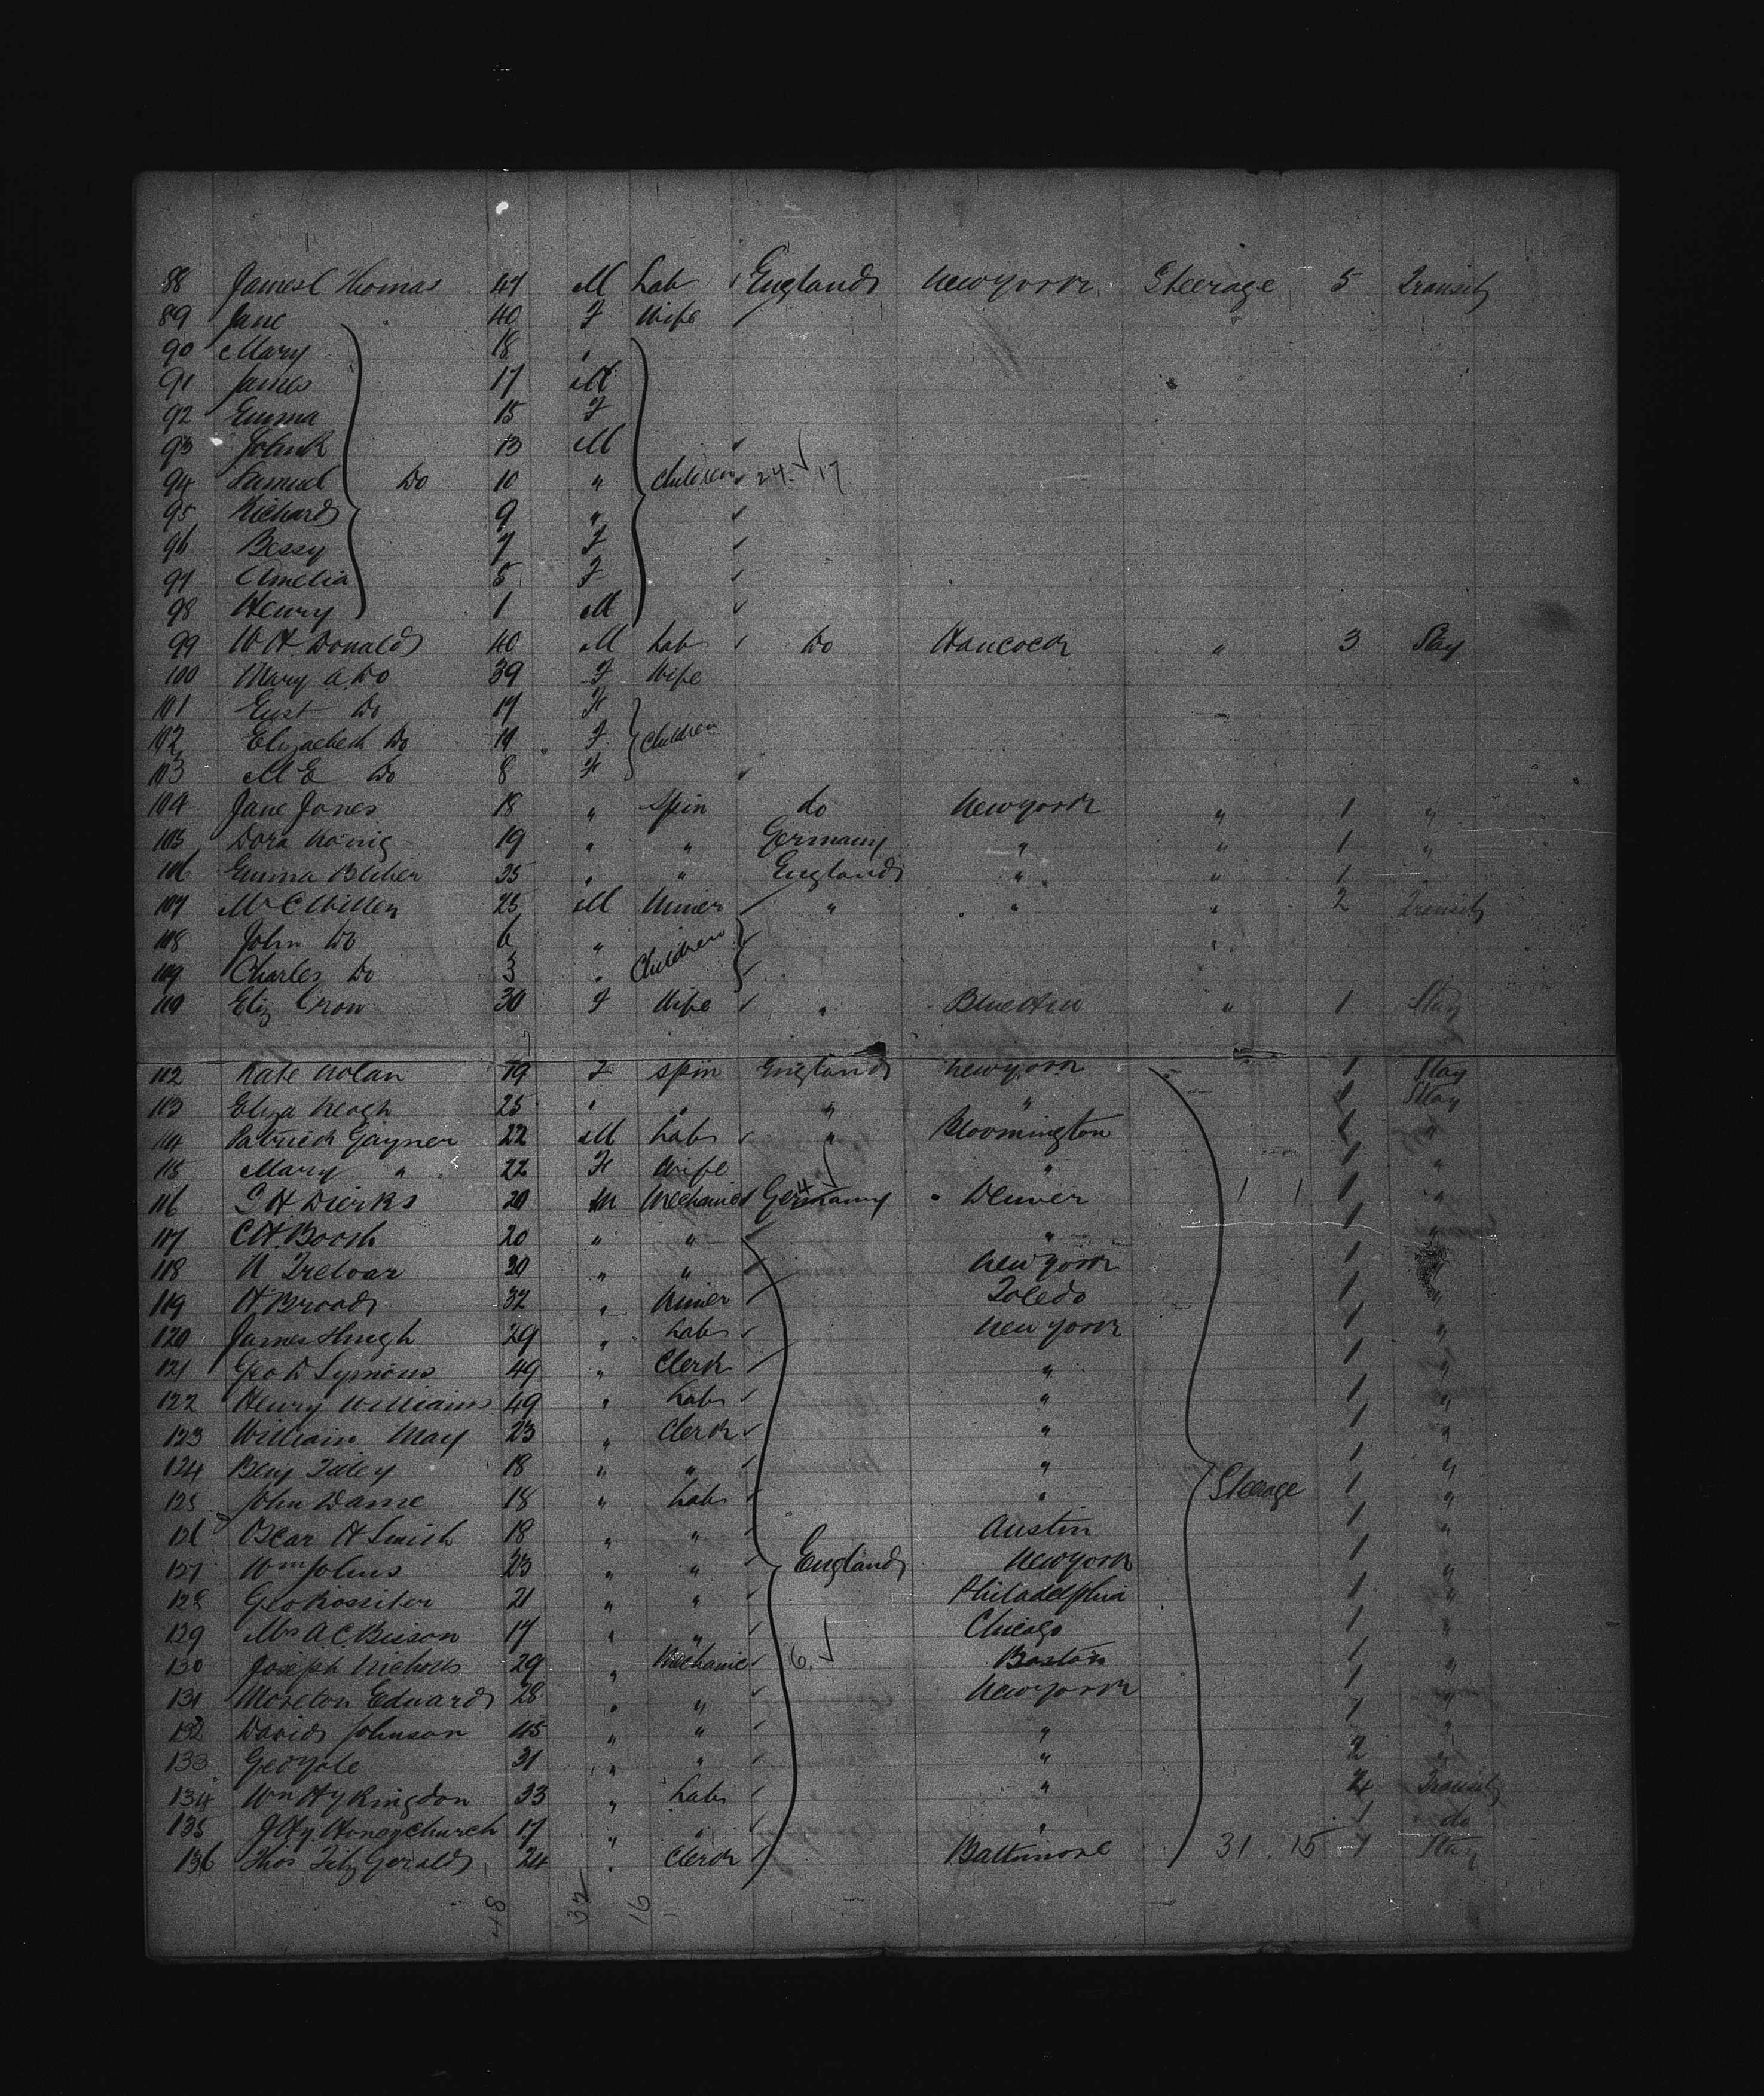 88 James C Thomas 47 M Lab England New York Steerage 5 Transit
89 Jane 40 F Wife
90 Mary 18 "
91 James 17 M
92 Emma 15 F
93 John R 13 M
94 Samuel Do 10 " Children 24 17
95 Richard 9 "
96 Bessy 7 F
97 Amelia 5 F
98 Henry 1 M
99 W H Donald 40 M Lab Do Hancock " 3 Stay
100 Mary A Do 39 F Wife
101 Do 17 F
102 Elizabeth Do 14 F Children
103 M E Do 8 F
104 Jane Jones 18 " Spin do New York " 1 "
105 Dora König 19 " " Germany " " 1 "
106 Emma 35 " " England " " 1
107 25 M Miner " " " 2 Transit
108 John Do 6 " "
109 Charles Do 3 " Children "
110 Eliz Cron 30 F Wife " " 1 Stay
112 Kate Nolan 19 F Spin England New York 1 Stay
113 Eliza Keogh 25 " " " " 1 Stay
114 Patrick Gayner 22 M Lab " Bloomington 1 "
115 Mary " 22 F Wife " 1 "
116 H Dierks 20 M Mechanic Germany 4 Denver 1 1 1 "
117 C H Boosh 20 " " " 1 "
118 N Treloar 30 " " New York 1
119 H Broad 32 " Miner Toledo 1 "
120 James Hugh 29 " Lab New York 1 "
121 Geo D Symons 49 " Clerk " 1 "
122 Henry Williams 49 " Lab " 1 "
123 William May 23 " Clerk " 1 "
124 Benj 18 " " " 1 "
125 John 18 " Lab " Steerage 1 "
126 Oscar H Smith 18 " " Austin 1 "
127 Wm Johns 23 " " England New York 1 "
128 Geo Rossiter 21 " " Philadelphia 1 "
129 A C 17 " " Chicago 1 "
130 Joseph Nicholls 29 " Mechanic 6 Boston 1 "
131 Moreton Edwards 28 " " New York 1 "
132 David Johnson 45 " " " 1 "
133 Geo Yole 31 " " " 2 "
134 Wm Hy Kingdon 33 " Lab " 4 Transit
135 J Hy Honeychurch 17 " " " 1 do
136 Thos Fitzgerald 24 " Clerk Baltimore 31 15 1 Stay
48 32 16